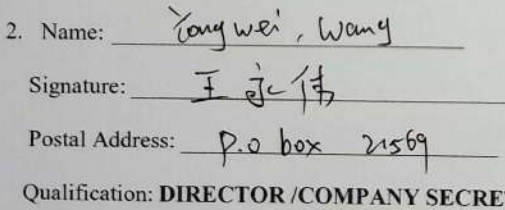 2. Name: Yongwei, Wang
Signature: 王永伟
Postal Address: P.o box 21569
Qualification: DIRECTOR /COMPANY SECRE